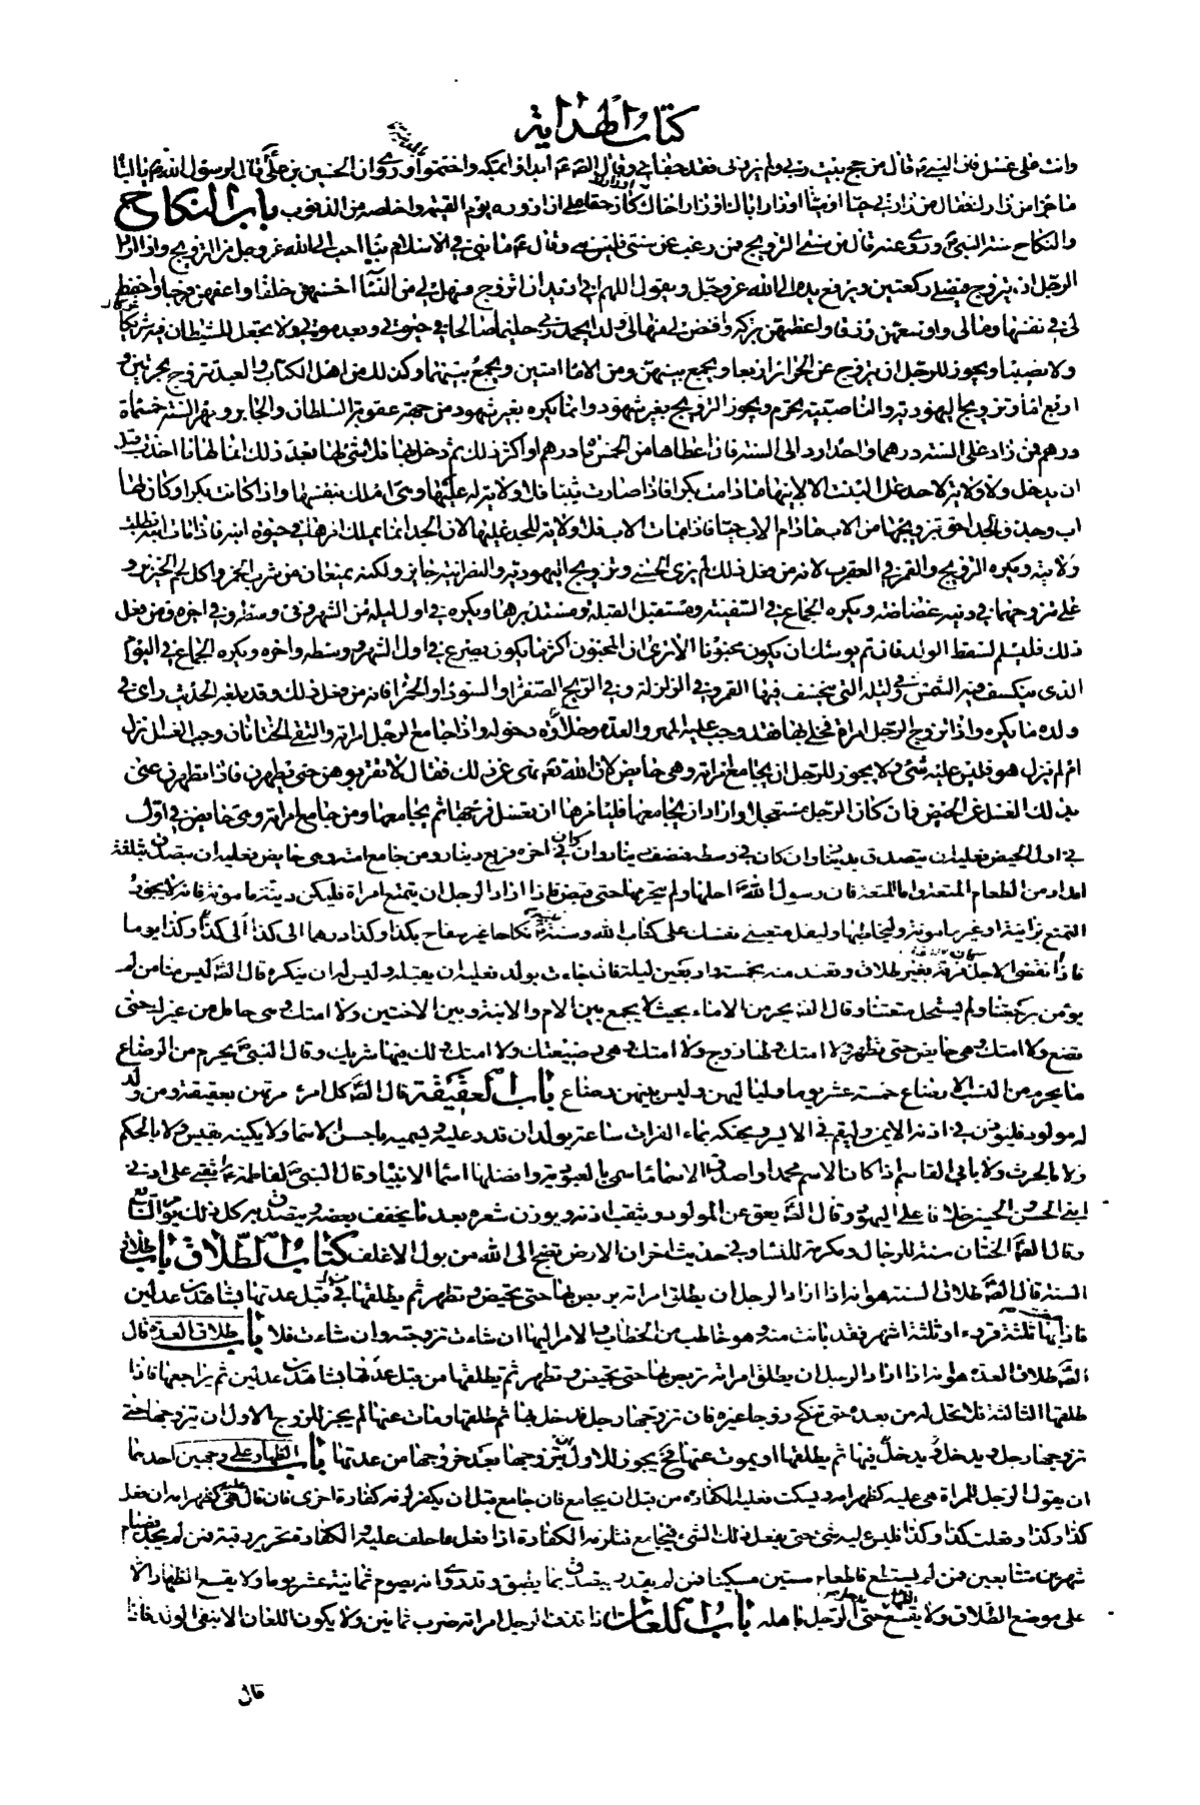 كتاب الهداية
وانت على غسل فان النبي ص قال من حج بيت ربي ولم يزرني فقد جفاني وقال الصادق ع ابدأوا بمكة واختموا وروي ان الحسين بن علي قال لرسول الله ص يا ابتا
ما جزا من زارك فقال من زارني حيا او ميتا او زار اباك او زار اخاك كان حقا علي ان ازوره يوم القيمة واخلصه من الذنوب باب النكاح
والنكاح سنة النبي ص وروي عنه قال من سنتي التزويج فمن رغب عن سنتي فليس مني وقال ع ما بني في الاسلام بنا احب الى الله عز وجل من التزويج واذا اراد
الرجل ان يتزوج فيصلي ركعتين ويرفع يده الى الله عز وجل ويقول اللهم اني اريد ان اتزوج فسهل لي من النساء احسنهن خلقا واعفهن فرجا واحفظهن
لي في نفسها ومالي واوسعهن رزقا واعظمهن بركة واقض لي منها لي ولدا تجعله لي خلفا صالحا في حيوتي وبعد موتي ولا تجعل للشيطان فيه شركا
ولا نصيبا ويجوز للرجل ان يتزوج من الحرائر اربعا ويجمع بينهن ومن الاما امتين ويجمع بينهما وكذلك من اهل الكتاب والعبد يتزوج بحرتين و
اربع اما وتزويج اليهودية والناصبية يحرم ويجوز التزويج بغير شهود وانما يكره بغير شهود من جهة عقوبة السلطان والجابر ومهر السنة خمسماة
درهم فمن زاد على السنة درهما واحدا رد الى السنة فاذا اعطاها من الخمس مائة درهم او اكثر ذلك ثم دخل بها فلا شئ لها بعد ذلك انما لها ما اخذت قبل
ان يدخل ولا ولاية لاحد على البنت الا لابيها ما دامت بكرا فاذا صارت ثيبا فلا ولاية له عليها وهي املك بنفسها واذا كانت بكرا وكان لها
اب وجد فالجد احق بتزويجها من الاب ما دام الاب حيا فاذا مات الاب فلا ولاية للجد عليها لان الجد انما يملك امرها في حيوة ابنه فاذا مات ابنه بطلت
ولايته ويكره التزويج والقمر في العقرب لانه من فعل ذلك لم ير الحسنى وتزويج اليهودية والنصرانية جايز ولكنه يمنعان من شرب الخمر واكل لحم الخنزير و
على متزوجهما في دينه غضاضة ويكره الجماع في السفينة ومستقبل القبلة ومستدبرها ويكره في اول ليلة من الشهر وفي وسطه وفي اخره ومن فعل
ذلك فليسلم لسقط الولد فان تم يوشك ان يكون مجنونا الا ترى ان المجنون اكثر ما يكون يصرع في اول الشهر ووسطه واخره ويكره الجماع في اليوم
الذي ينكسف فيه الشمس وفي ليلة التي ينخسف فيها القمر وفي الزلزلة وفي الريح الصفراء والسوداء والحمراء فانه من فعل ذلك وقد بلغه الحديث راى في
ولده ما يكره واذا تزوج الرجل امراة فخلى بها فقد وجب عليه المهر والعدة وخلاؤه دخوله واذا جامع الرجل امراته والتقى الختانان وجب الغسل نزل
ام لم ينزل هو فليس عليه شئ ولا يجوز للرجل ان يجامع امراته وهي حايض لان الله تعالى نهى عن ذلك فقال لا تقربوهن حتى يطهرن فاذا تطهرن عنى
بذلك الغسل عن الحيض فان كان الرجل مستعجلا واراد ان يجامعها فليأمرها ان تغسل فرجها ثم يجامعها ومن جامع امراته وهي حايض في اول
في اول الحيض فعليه ان يتصدق بدينار وان كان في وسطه فنصف دينار وان كان في اخره فربع دينار ومن جامع امته وهي حايض فعليه ان يتصدق بثلثة
امداد من الطعام المتعة واما المتعة فان رسول الله ص احلها ولم يحرمها حتى قبض فاذا اراد الرجل ان يتمتع امراة فليكن دينة مامونة فانه لا يجوز
التمتع بزانية او غير مامونة وليخاطبها وليقل متعيني نفسك على كتاب الله وسنة نبيه ص نكاحا غير سفاح بكذا وكذا درهما الى كذا وكذا يوما
فاذا انقضى الاجل كان فرقة بغير طلاق وتعتد منه بخمسة واربعين ليلة فان جاءت بولد فعليه ان يقبله وليس له ان ينكره قال الصادق ع ليس منا من لم
يؤمن برجعتنا ولم يستحل متعتنا وقال الصادق ع يحرم من الاماء بحيث لا يجمع بين الام والابنة وبين الاختين ولا امتك وهي حامل من غيرك حتى
تضع ولا امتك وهي حايض حتى تطهر ولا امتك ولها زوج ولا امتك وهي رضيعتك ولا امتك ولك فيها شريك وقال النبي ص يحرم من الرضاع
ما يحرم من النسب الا رضاع خمسة عشر يوما ولياليهن وليس بينهن رضاع باب العقيقة قال الصادق ع كل امرئ مرتهن بعقيقته ومن ولد
له مولود فليؤذن في اذنه الايمن وليقم في الايسر ويحنكه بماء الفرات ساعة يولد ان قدر عليه ويسميه باحسن الاسما ولا يكنيه بعيسى ولا بالحكم
ولا بالحرث ولا بابي القاسم اذا كان الاسم محمدا واصدق الاسما ما سمي بالعبودية وافضلها اسما الانبيا وقال النبي ص لفاطمة ع اثقبي على اذني
ابني الحسن والحسين خلافا على اليهود وقال الصادق ع يعق عن المولود ويثقب اذنه ويوزن شعره بعد ما يجفف بفضة ويتصدق به كل ذلك يوم السابع
وقال الصادق ع الختان سنة للرجال ومكرمة للنساء وفي حديث اخر ان الارض تضج الى الله من بول الاغلف كتاب الطلاق باب طلاق
السنة قال الصادق ع طلاق السنة هو انه اذا اراد الرجل ان يطلق امراته تربص بها حتى تحيض وتطهر ثم يطلقها في قبل عدتها بشاهدين عدلين
فاذا مضت بها ثلثة قروء او ثلثة اشهر فقد بانت منه وهو خاطب من الخطاب والامر اليها ان شاءت تزوجته وان شاءت فلا باب طلاق العدة قال
الصادق ع طلاق العدة هو انه اذا اراد الرجل ان يطلق امراته تربص بها حتى تحيض وتطهر ثم يطلقها من قبل عدتها بشاهدين عدلين ثم يراجعها فاذا
طلقها الثالثة فلا تحل له من بعد حتى تنكح زوجا غيره فان تزوجها رجل قد دخل بها ثم طلقها ومات عنها لم يجز للزوج الاول ان يتزوجها حتى
تزوجها رجل ويدخل فيها ثم يطلقها او يموت عنها فح يجوز للاول ان يتزوجها بعد خروجها من عدتها باب الظهار وهو على وجهين احدهما
ان يقول الرجل للمراة هي عليه كظهر امه ويسكت فعليه الكفارة من قبل ان يجامع فان جامع قبل ان يكفر لزمته كفارة اخرى فان قال هي عليه كظهر امه ان فعل
كذا وكذا وفعلت كذا وكذا فليس عليه شئ حتى يفعل ذلك الشئ فيجامع فتلزمه الكفارة اذا فعل ما حلف عليه والكفارة تحرير رقبة فمن لم يجد فصيام
شهرين متتابعين فمن لم يستطع فاطعام ستين مسكينا فمن لم يقدر يتصدق بما يطيق وقد روي انه يصوم ثمانية عشر يوما ولا يقع الظهار الا
على موضع الطلاق ولا يقع حتى الرجل باهله باب اللعان اذا قذف الرجل امراته ضرب ثمانين ولا يكون اللعان الا بنفي الولد فاذا
قال